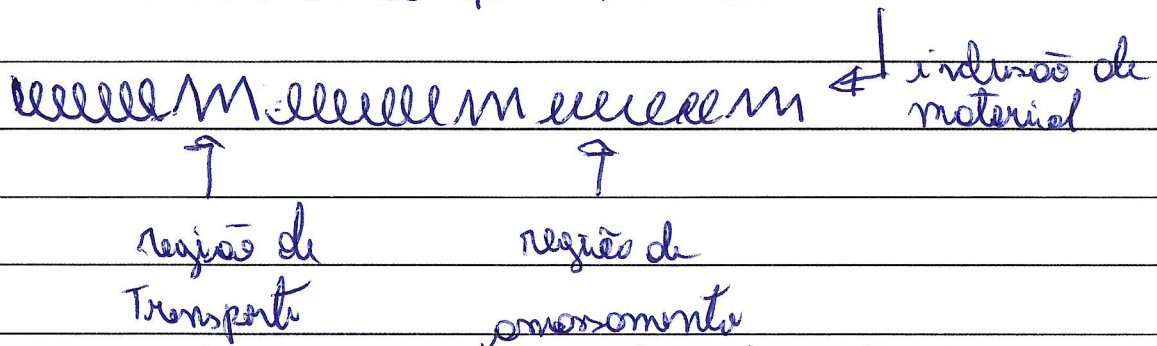 inclusão de
material
região de
Transporte
região de
amassamento